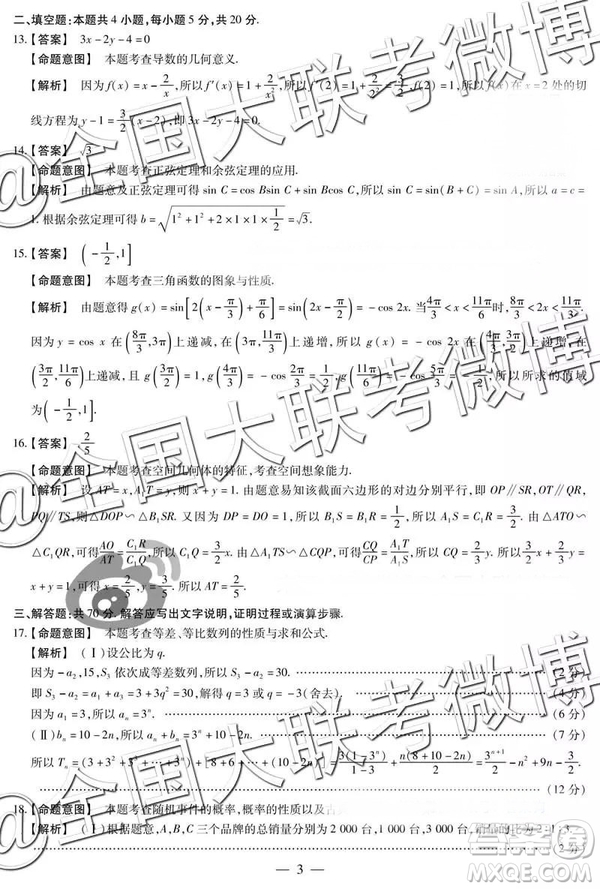 二、填空题:本题共4小题,每小题5分,共20分.
13.【答案】 3x-2y-4=0
【命题意图】 本题考查导数的几何意义.
【解析】 因为f(x)=x-2/x,所以f′(x)=1+2/x²,所以f′(2)=1+2/2²=3/2,f(2)=1,所以f(x)在x=2处的切
线方程为y-1=3/2(x-2),即3x-2y-4=0.
14.【答案】 √3
【命题意图】 本题考查正弦定理和余弦定理的应用.
【解析】 由题意及正弦定理可得sin C=cos Bsin C+sin Bcos C,所以sin C=sin(B+C)=sin A,所以a=c=
1.根据余弦定理可得b=√(1²+1²+2×1×1×1/2)=√3.
15.【答案】 (-1/2,1]
【命题意图】 本题考查三角函数的图象与性质.
【解析】 由题意得g(x)=sin[2(x-π/3)+π/6]=sin(2x-π/2)=-cos 2x.当4π/3<x<11π/6时,8π/3<2x<11π/3.
因为y=cos x在(8π/3,3π)上递减,在(3π,11π/3)上递增,所以g(x)=-cos 2x在(4π/3,3π/2)上递增,在
(3π/2,11π/6)上递减,且g(3π/2)=-cos 3π=1,g(4π/3)=-cos 8π/3=1/2,g(11π/6)=-cos 11π/3=-1/2,所以所求的值域
为(-1/2,1].
16.【答案】 2/5
【命题意图】 本题考查空间几何体的特征,考查空间想象能力.
【解析】 设AT=x,A₁T=y,则x+y=1.由题意易知该截面六边形的对边分别平行,即OP∥SR,OT∥QR,
PQ∥TS,则△DOP∽△B₁SR.又因为DP=DO=1,所以B₁S=B₁R=1/2,所以A₁S=C₁R=3/2.由△ATO∽
△C₁QR,可得AO/AT=C₁R/C₁Q,
x+y=1,可得x=2/5,y=3/5,所以AT=2/5.
三、解答题:共70分.解答应写出文字说明,证明过程或演算步骤.
17.【命题意图】 本题考查等差、等比数列的性质与求和公式.
【解析】 (Ⅰ)设公比为q.
因为-a₂,15,S₃依次成等差数列,所以S₃-a₂=30. (2分)
即S₃-a₂=a₁+a₃=3+3q²=30,解得q=3或q=-3(舍去). (4分)
因为a₁=3,所以aₙ=3ⁿ. (6分)
(Ⅱ)bₙ=10-2n,所以aₙ+bₙ=3ⁿ+10-2n. (7分)
所以Tₙ=(3+3²+…+3ⁿ)+[8+6+…+(10-2n)]=3(1-3ⁿ)/(1-3)+n(8+10-2n)/2=3ⁿ⁺¹/2-n²+9n-3/2.
(12分)
18.【命题意图】 本题考查随机事件的概率,概率的性质以及古
【解析】 (Ⅰ)根据题意,A,B,C三个品牌的总量分别为2 000台,1 000台,3 000台,
(2分)
— 3 —
@全国大联考微博
@全国大联考微博
@全国大联考微博